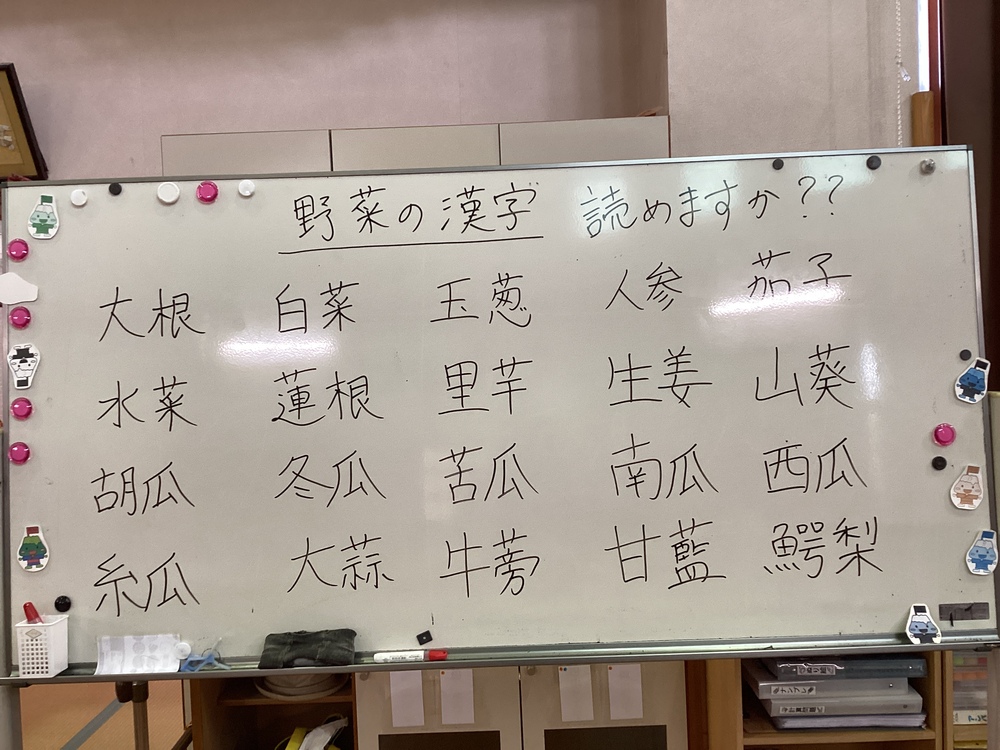 野菜の漢字 読めますか??
大根 白菜 玉葱 人参 茄子
水菜 蓮根 里芋 生姜 山葵
胡瓜 冬瓜 苦瓜 南瓜 西瓜
糸瓜 大蒜 牛蒡 甘藍 鰐梨